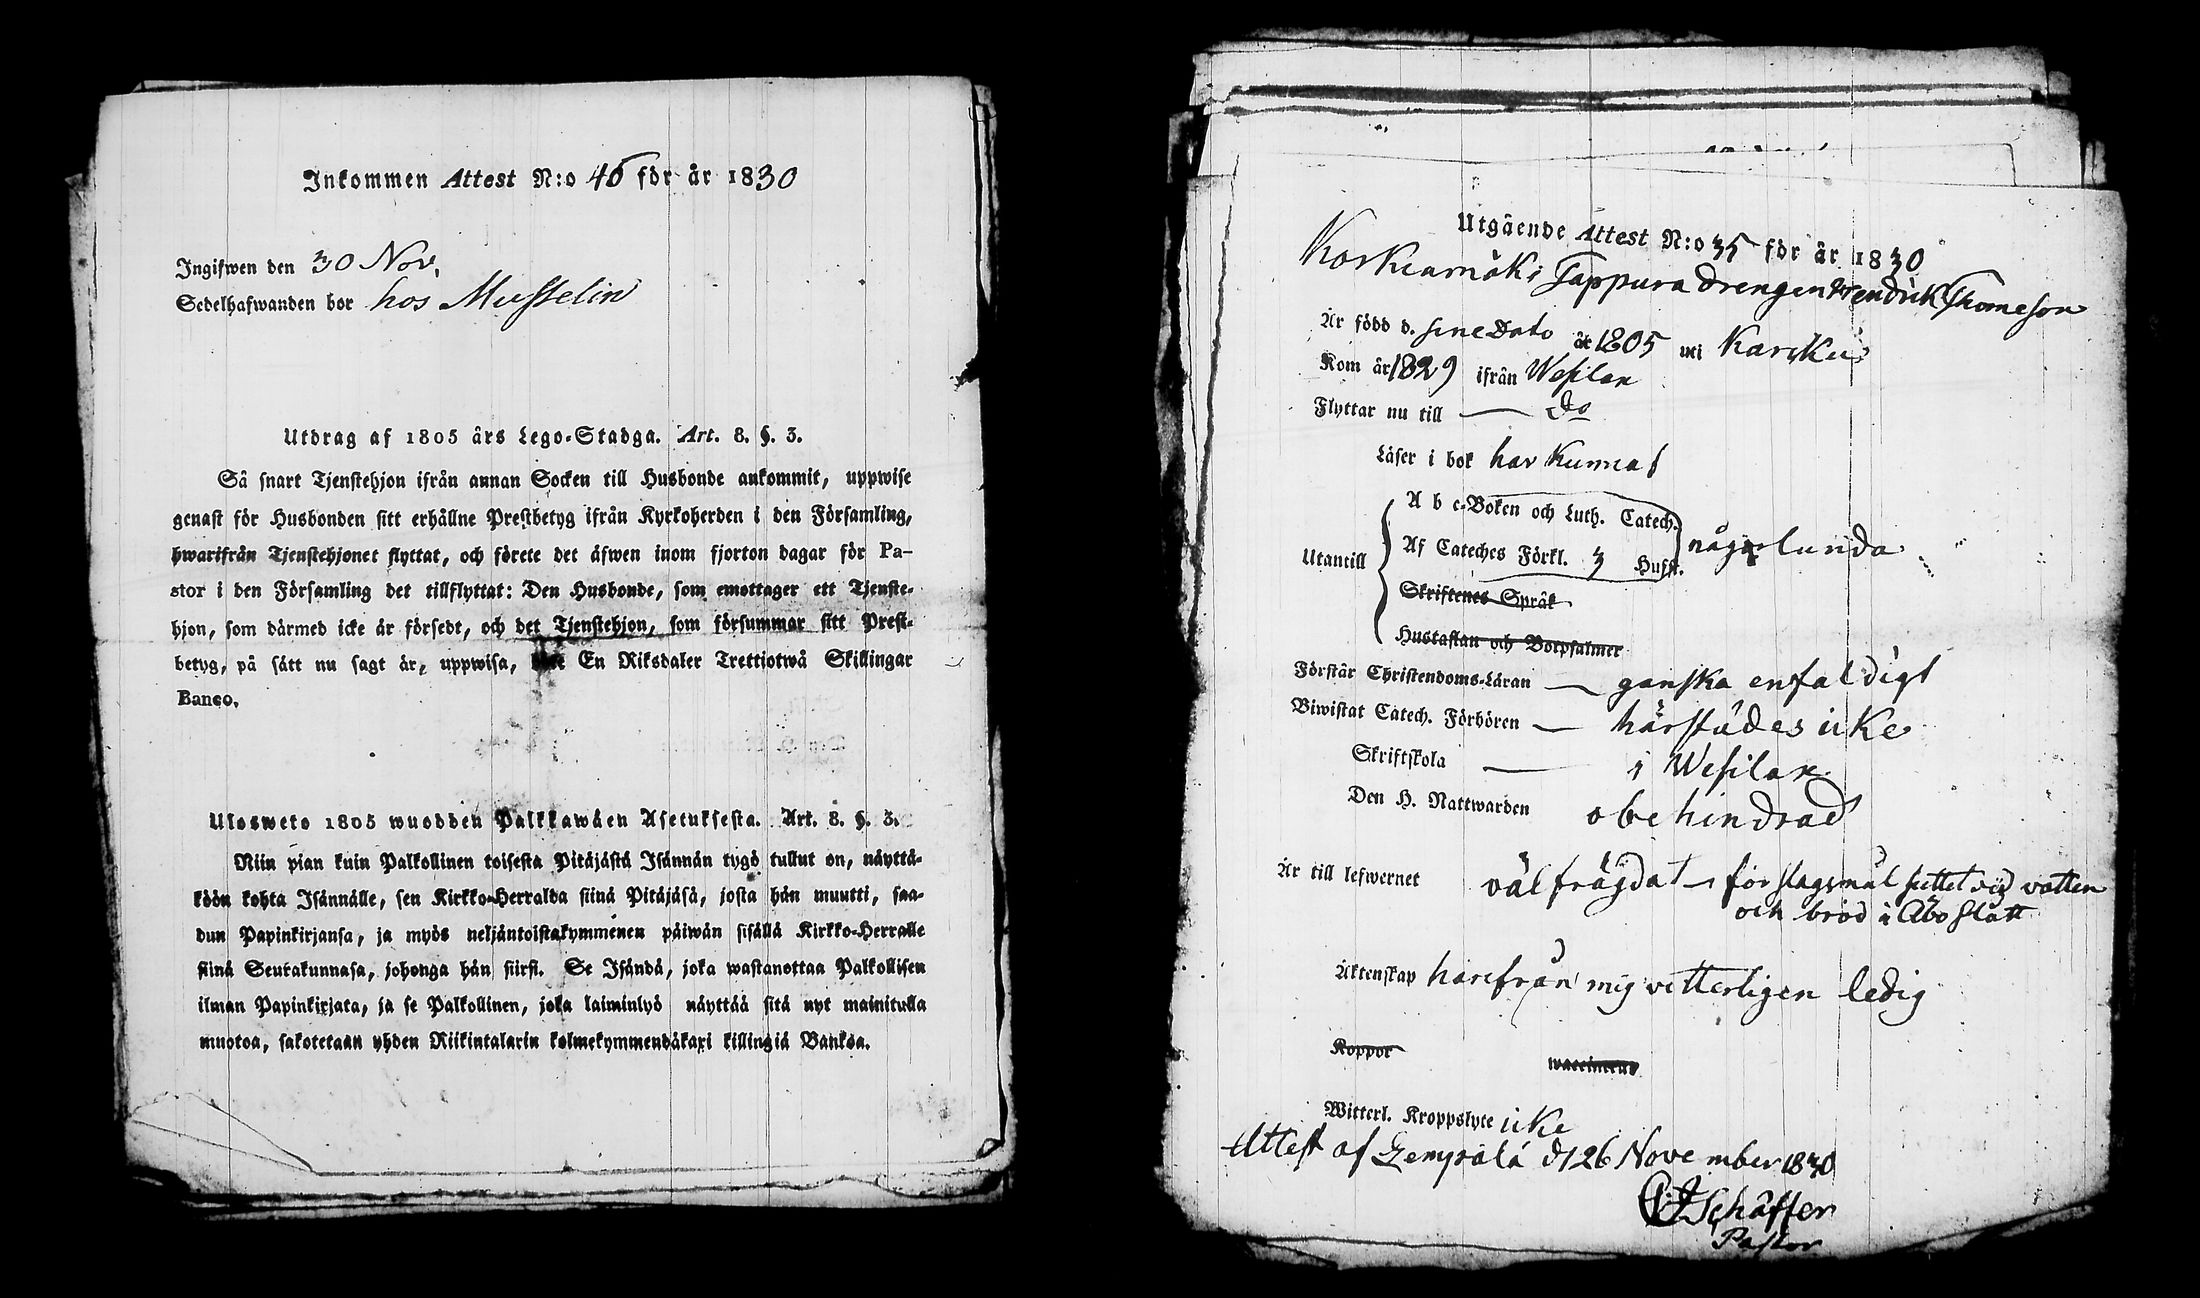 Inkommen Attest N:o 46 för år 1830
Ingifwen den 30 Nov.
Sedelhafwanden bor hos Musselin
Utdrag af 1805 års Lego-Stadga. Art. 8. §. 3.
Så snart Tjenstehjon ifrån annan Socken till Husbonde ankommit, uppwise
genast för Husbonden sitt erhållne Prestbetyg ifrån Kyrkoherden i den Församling,
hwarifrån Tjenstehjonet flyttat, och förete det äfwen inom fjorton dagar för Pa-
stor i den Församling det tillflyttat: Den Husbonde, som emottager ett Tjenste-
hjon, som därmed icke är försedt, och det Tjenstehjon, som försummar sitt Prest-
betyg, på sätt nu sagt är, uppwisa, En Riksdaler Trettiotwå Skillingar
Banco.
Ulosweto 1805 wuodden Palkkawäen Asetuksesta. Art. 8. §. 3.
Niin pian kuin Palkollinen toisesta Pitäjästä Isännän tygö tullut on, näyttä-
köön kohta Isännälle, sen Kirkko-Herralda siinä Pitäjäsä, josta hän muutti, saa-
dun Papinkirjansa, ja myös neljäntoistakymmenen päiwän sisällä Kirkko-Herralle
siinä Seurakunnasa, johonga hän siirsi. Se Isändä, joka wastanottaa Palkollisen
ilman Papinkirjata, ja se Palkollinen, joka laiminlyö näyttää sitä nyt mainitulla
muotoa, sakotetaan yhden Riikintalarin kolmekymmendäkaxi killingiä Banksa.
Utgående Attest N:o 35 för år 1830
Korkiamäki Tappura drengen Hendrik Thomeson
Är född d. sine Dato år 1805 uti Karkku
Kom år 1829 ifrån Wesilax
Flyttar nu till — Do
Läser i bok har kunnat
A b c-Boken och Luth. Catech.
Utantill Af Cateches Förkl. 3 Hufst. någorlunda
Skriftenes Språk
Hustaflan och Botpsalmer
Förstår Christendoms-Läran — ganska enfaldigt
Biwistat Catech. Förhören — härstädes icke
Skriftskola — i Wesilax
Den H. Nattwarden obehindrad
Är till lefwernet välfrägdat för slagsmål suttet vid vatten
och bröd i Åbo Slått
Äktenskap härifrån mig vetterligen ledig
Koppor vaccinerad
Witterl. Kroppslyte icke
Attest af Lempälä d 26 November 1830
Schäffer
Pastor